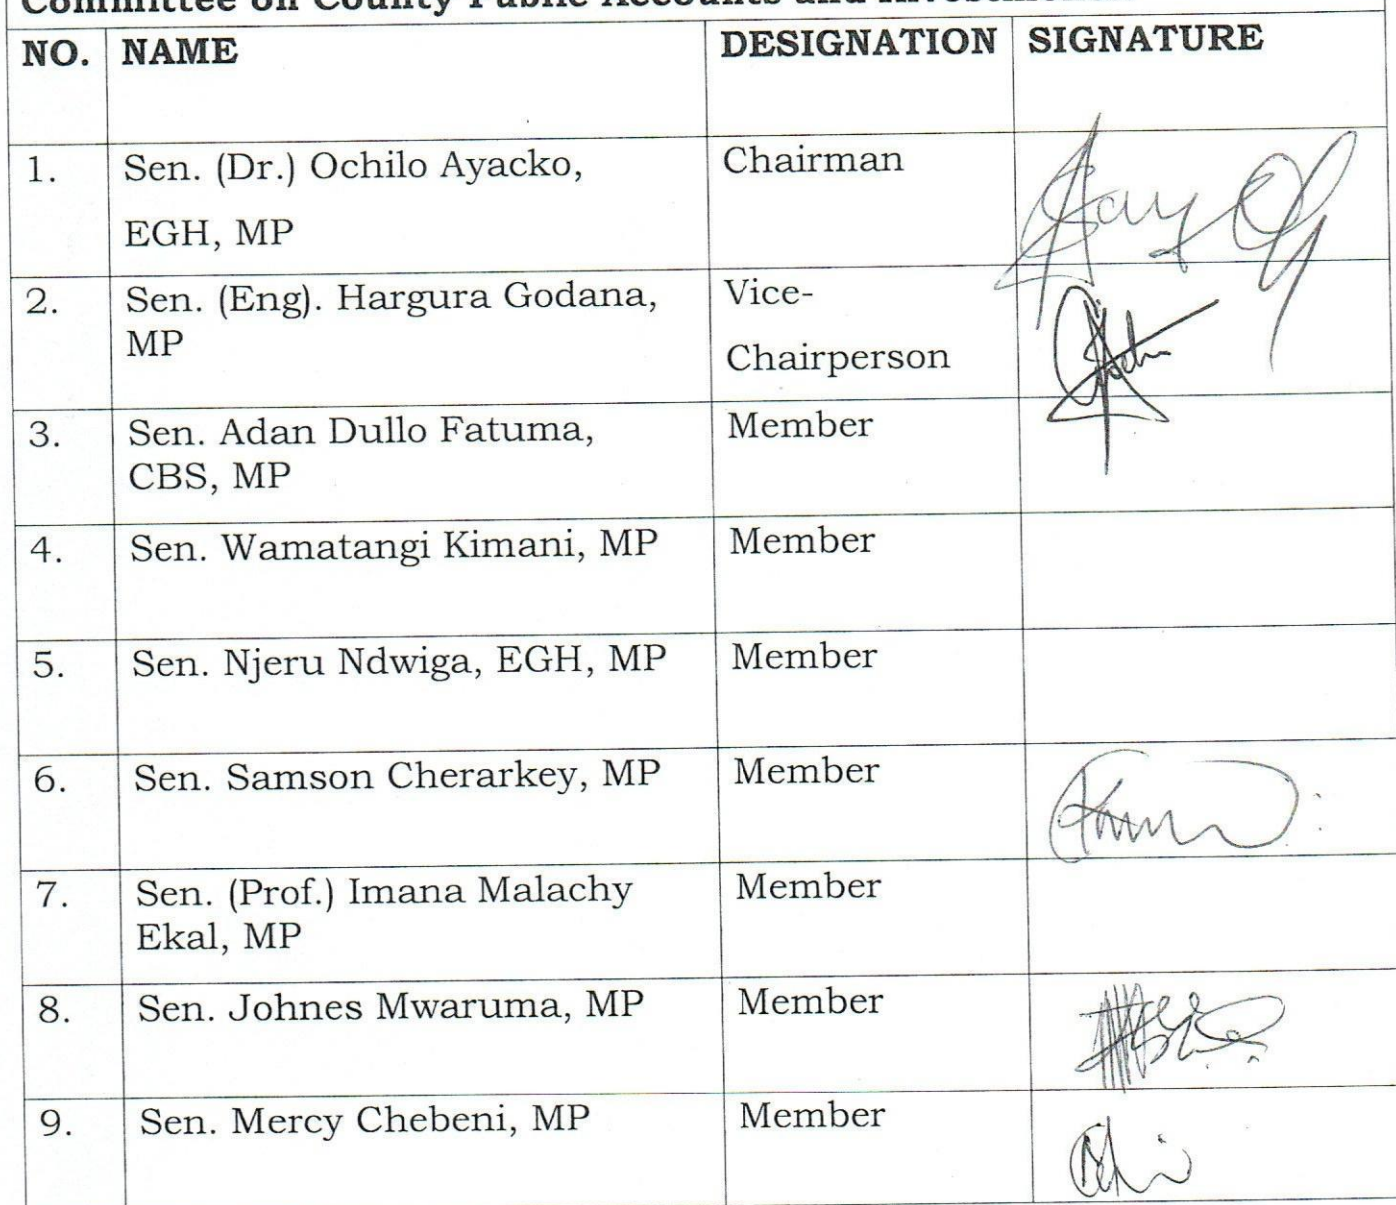 Committee on County Public Accounts and Investments
NO. NAME DESIGNATION SIGNATURE
1. Sen. (Dr.) Ochilo Ayacko, Chairman
EGH, MP
2. Sen. (Eng). Hargura Godana, Vice-
MP Chairperson
3. Sen. Adan Dullo Fatuma, Member
CBS, MP
4. Sen. Wamatangi Kimani, MP Member
5. Sen. Njeru Ndwiga, EGH, MP Member
6. Sen. Samson Cherarkey, MP Member
7. Sen. (Prof.) Imana Malachy Member
Ekal, MP
8. Sen. Johnes Mwaruma, MP Member
9. Sen. Mercy Chebeni, MP Member